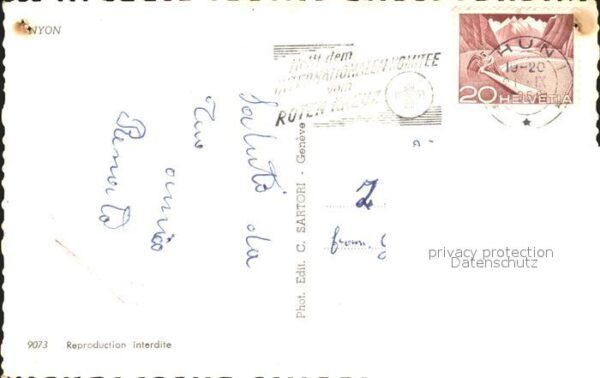 NYON
Helft dem
INTERNATIONALEN KOMITEE
vom
ROTEN KREUZ
THUN 1
19-20
IX
20 HELVETIA
Saluti da
Tuo
amico
Renato
Phot. Edit. C. SARTORI - Genève
privacy protection
Datenschutz
9073 Reproduction interdite